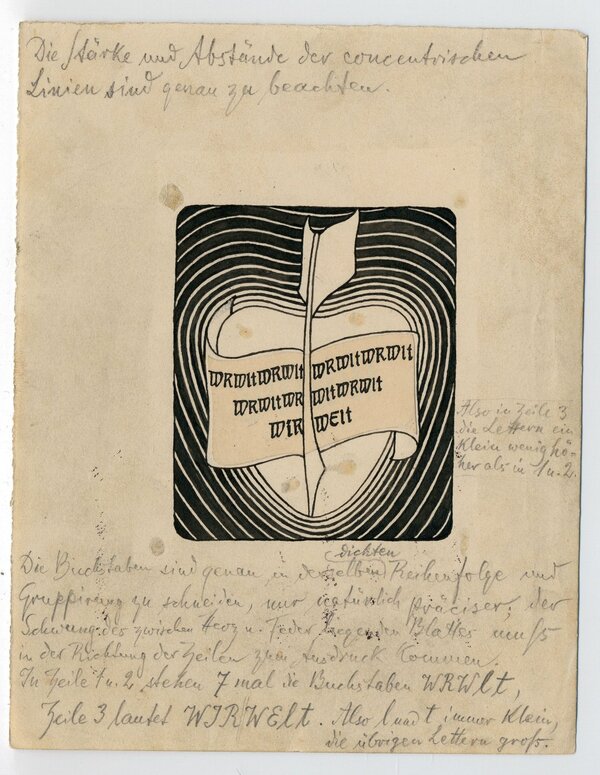 Die Stärke und Abstände der concentrischen
Linien sind genau zu beachten.
WRWltWRWlt WRWltWRWlt
WRWltWR WltWRWlt
WIR WElt
Also in Zeile 3
die Lettern ein
klein wenig hö-
her als in 1 u. 2.
dichten
Die Buchstaben sind genau in derselben Reihenfolge und
Gruppirung zu schneiden, nur natürlich präciser; der
Schwung des zwischen Herz u. Feder liegenden Blattes muß
in der Richtung der Zeilen zum Ausdruck kommen.
In Zeile 1 u. 2 stehen 7 mal die Buchstaben WRWlt,
Zeile 3 lautet WIRWElt. Also l und t immer klein,
die übrigen Lettern groß.